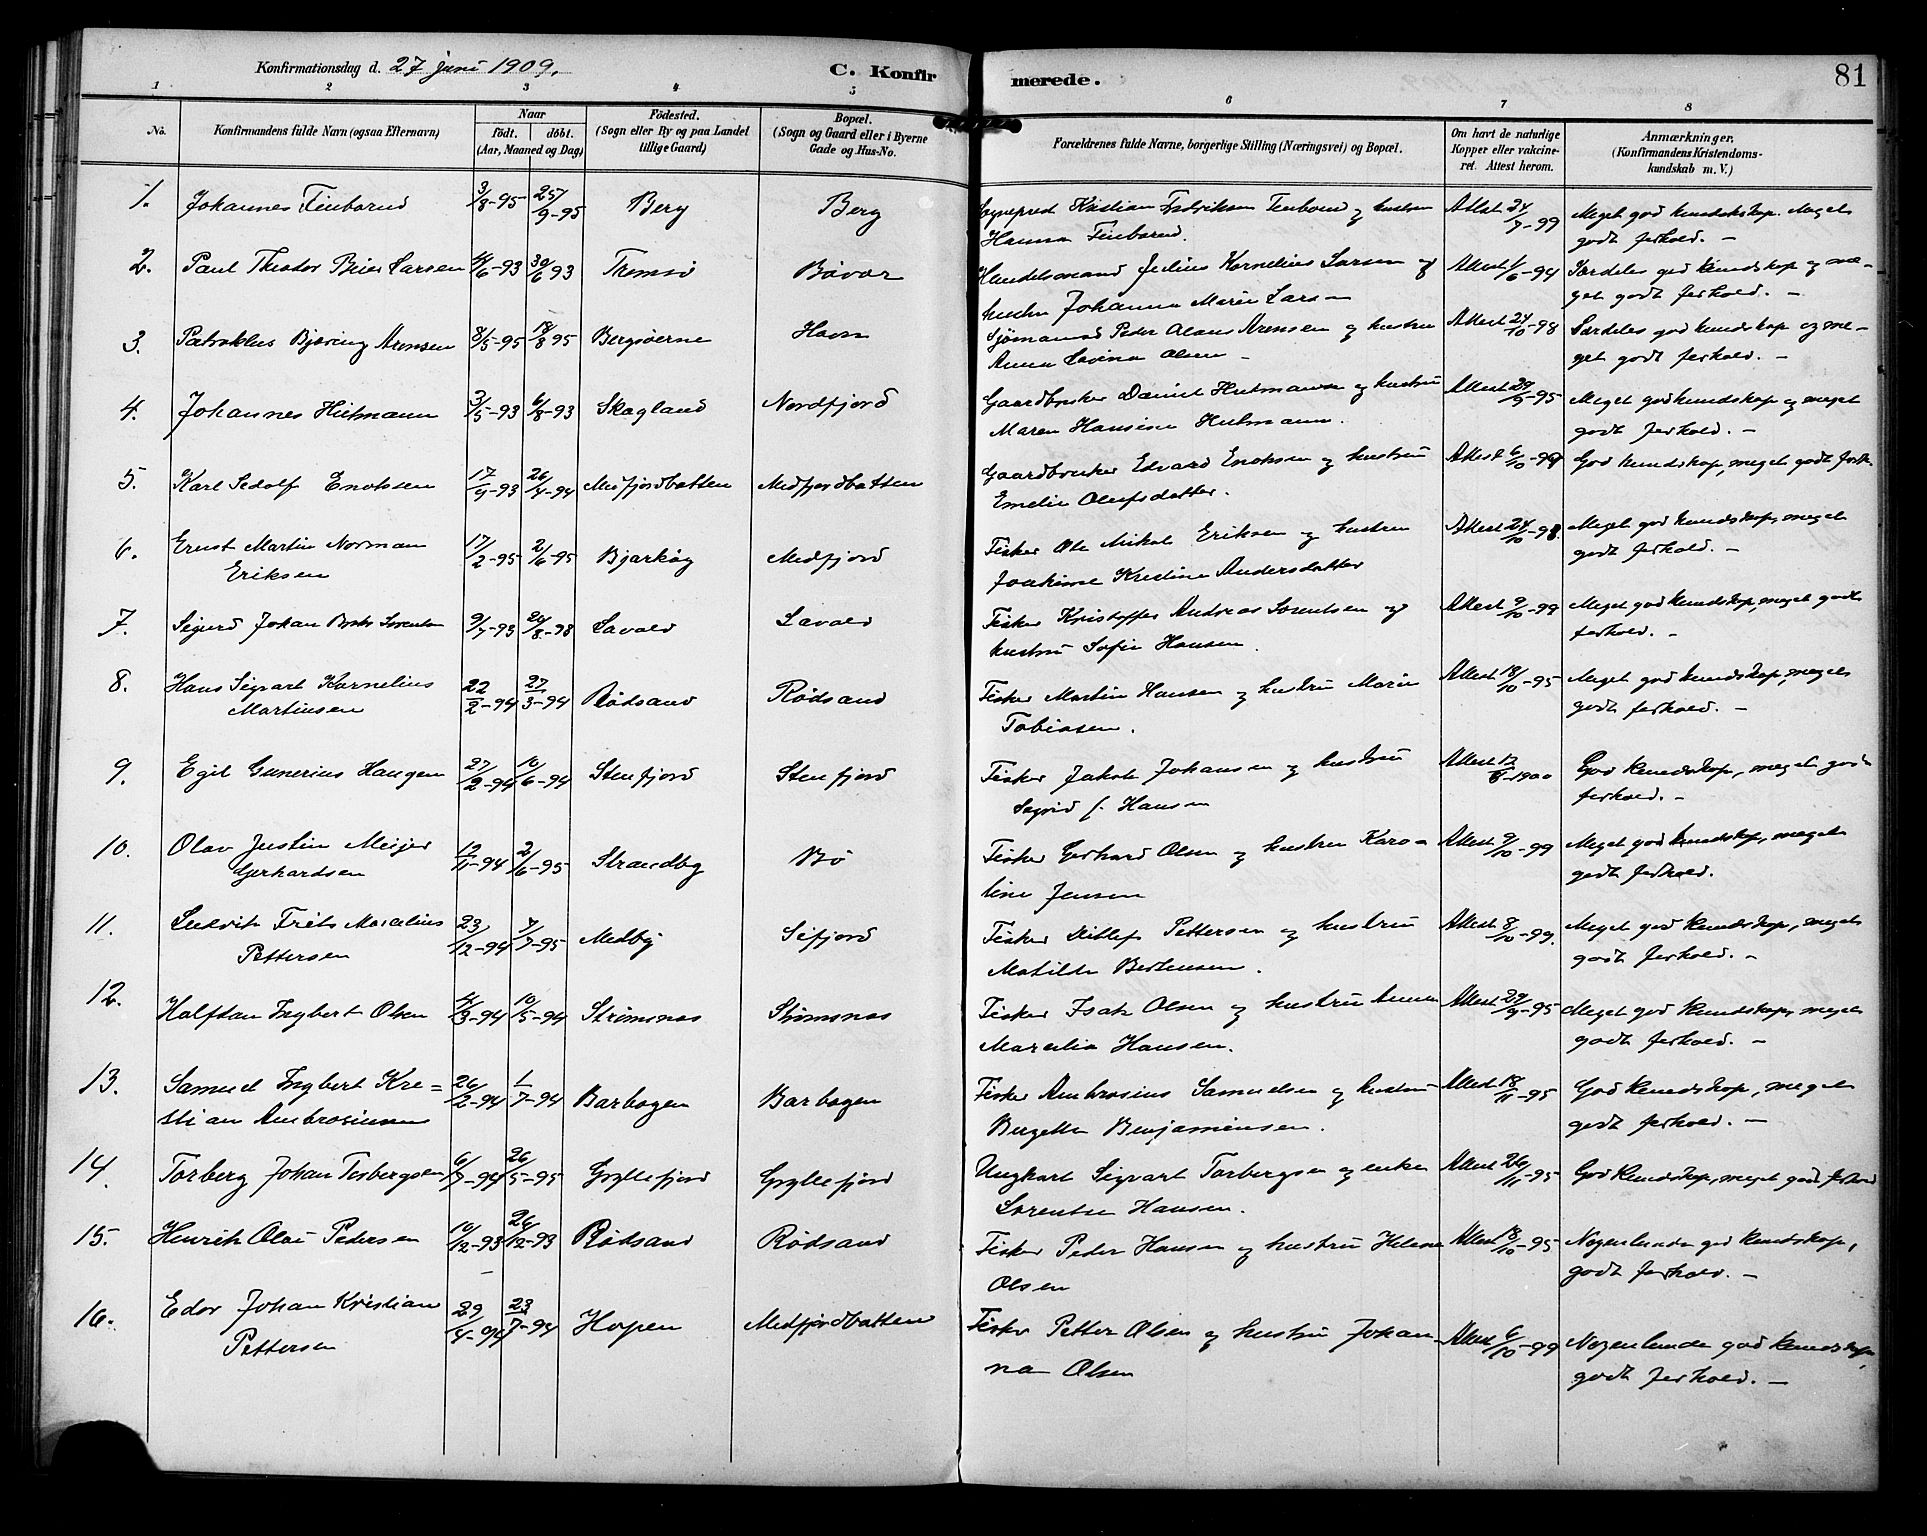 Konfirmationsdag d. 27 juni 1909.
C. Konfirmerede.
81
1 2 3 4 5 6 7 8
No.
Konfirmandens fulde Navn (ogsaa Efternavn)
Naar
født. døbt.
(Aar, Maaned og Dag)
Fødested.
(Sogn eller By og paa Landet
tillige Gaard)
Bopæl.
(Sogn og Gaard eller i Byerne
Gade og Hus-No.
Forældrenes fulde Navne, borgerlige Stilling (Næringsvei) og Bopæl.
Om havt de naturlige
Kopper eller vakcine-
ret. Attest herom.
Anmærkninger,
(Konfirmandens Kristendoms-
kundskab m. V.)
1. Johannes 3/8-95 25/9-95 Berg Berg Sogneprest Kristian og hustru Attest 24/7-99 Meget god kundskap. Meget
Hanna godt forhold. -
2. Paul Theodor Larsen 4/6-93 30/6 93 Tromsø Bøvær Handelsmand Julius Kornelius Larsen og Attest 1/6-94 Særdeles god kundskap og me-
hustru Johanna Marie Larsen get godt forhold. -
3. Patroklus Bjæring Arensen 8/5-95 18/8 95 Bergsøerne Havn Sjømand Peder Olaus Arensen og hustru Attest 24/10-98 Særdeles god kundskap og me-
Anna Lovina Olsen - get godt forhold. -
4. Johannes Hutmann 3/5-93 6/8-93 Skagland Nordfjord Gaardbruker Daniel Hutmann og hustru Attest 29/9-95 Meget god kundskap og meget
Maren Hansine Hutmann. godt forhold. -
5. Karl Sedolf Enoksen 17/9-93 26/4-94 Medfjordbotten Medfjordbotten Gaardbruker Edvard Enoksen og hustru Attest 6/10-99 God kundskap, meget godt forh.
Emelie Olufsdatter.
6. Ernst Martin Norman 17/2-95 2/6-95 Bjarkøy Medfjord Fisker Ole Mikal Eriksen og hustru Attest 24/10-98. Meget god kundskap, meget
Eriksen Joakime Kristine Andersdatter godt forhold. -
7. Sigurd Johan 9/7-93 20/8-93 Lavold Lavold Fisker Kristoffer Andreas Lorentsen og Attest 9/10-99 Meget god kundskap, meget godt
hustru Sofie Hansen. forhold. -
8. Hans Sigvart Kornelius 22/2-94 27/3-94 Rødsand Rødsand Fisker Martin Hansen og hustru Marie Attest 18/10-95 Meget god kundskap, meget
Martinsen Tobiasen. godt forhold. -
9. Egil Gunerius Haugen 27/2-94 10/6-94 Stenfjord Stenfjord Fisker Jakob Johansen og hustru Attest 12/6-1900 God kundskap, meget godt
Sigrid f. Hansen forhold. -
10. Olav Justin Meijer 12/11-94 2/6-95 Strandby Bø Fisker Gerhard Olsen og hustru Karo- Attest 9/10-99 Meget god kundskap, meget
Gerhardsen line Jensen godt forhold.
11. Ludvik Frits Marelius 23/12-94 7/7-95 Medby Sifjord Fisker Ditlef Pettersen og hustru Attest 8/10-99. Meget god kundskap, meget
Pettersen Matilde Berthensen. godt forhold. -
12. Halfdan Ingbert Olsen 4/3-94 10/5-94 Strømsnes Strømsnes Fisker Isak Olsen og hustru Anna Attest 29/9-95 Meget god kundskap, meget
Marcilia Hansen. godt forhold. -
13. Samuel Ingbert Kri= 26/2-94 1/7-94 Barbogen Barbogen Fisker Ambrosius Samuelsen og hustru Attest 18/11-95 God kundskap, meget
stian Ambrosiussen Bergette Benjaminsen. godt forhold. -
14. Torberg Johan Torbergsen 6/7-94 26/5-95 Gryllefjord Gryllefjord Ungkarl Sigvart Torbergsen og enke Attest 26/11-95 God kundskap, meget godt forhold
Lorentse Hansen.
15. Henrik Olai Pedersen 10/12-93 26/12-93 Rødsand Rødsand Fisker Peder Hansen og hustru Helene Attest 18/10-95 Nogenlunde god kundskap,
Olsen godt forhold. -
16. Edor Johan Kristian 29/4-94 23/7-94 Hopen Medfjordbotten Fisker Petter Olsen og hustru Johan- Attest 6/10-99 Nogenlunde god kundskap,
Pettersen na Olsen godt forhold. -